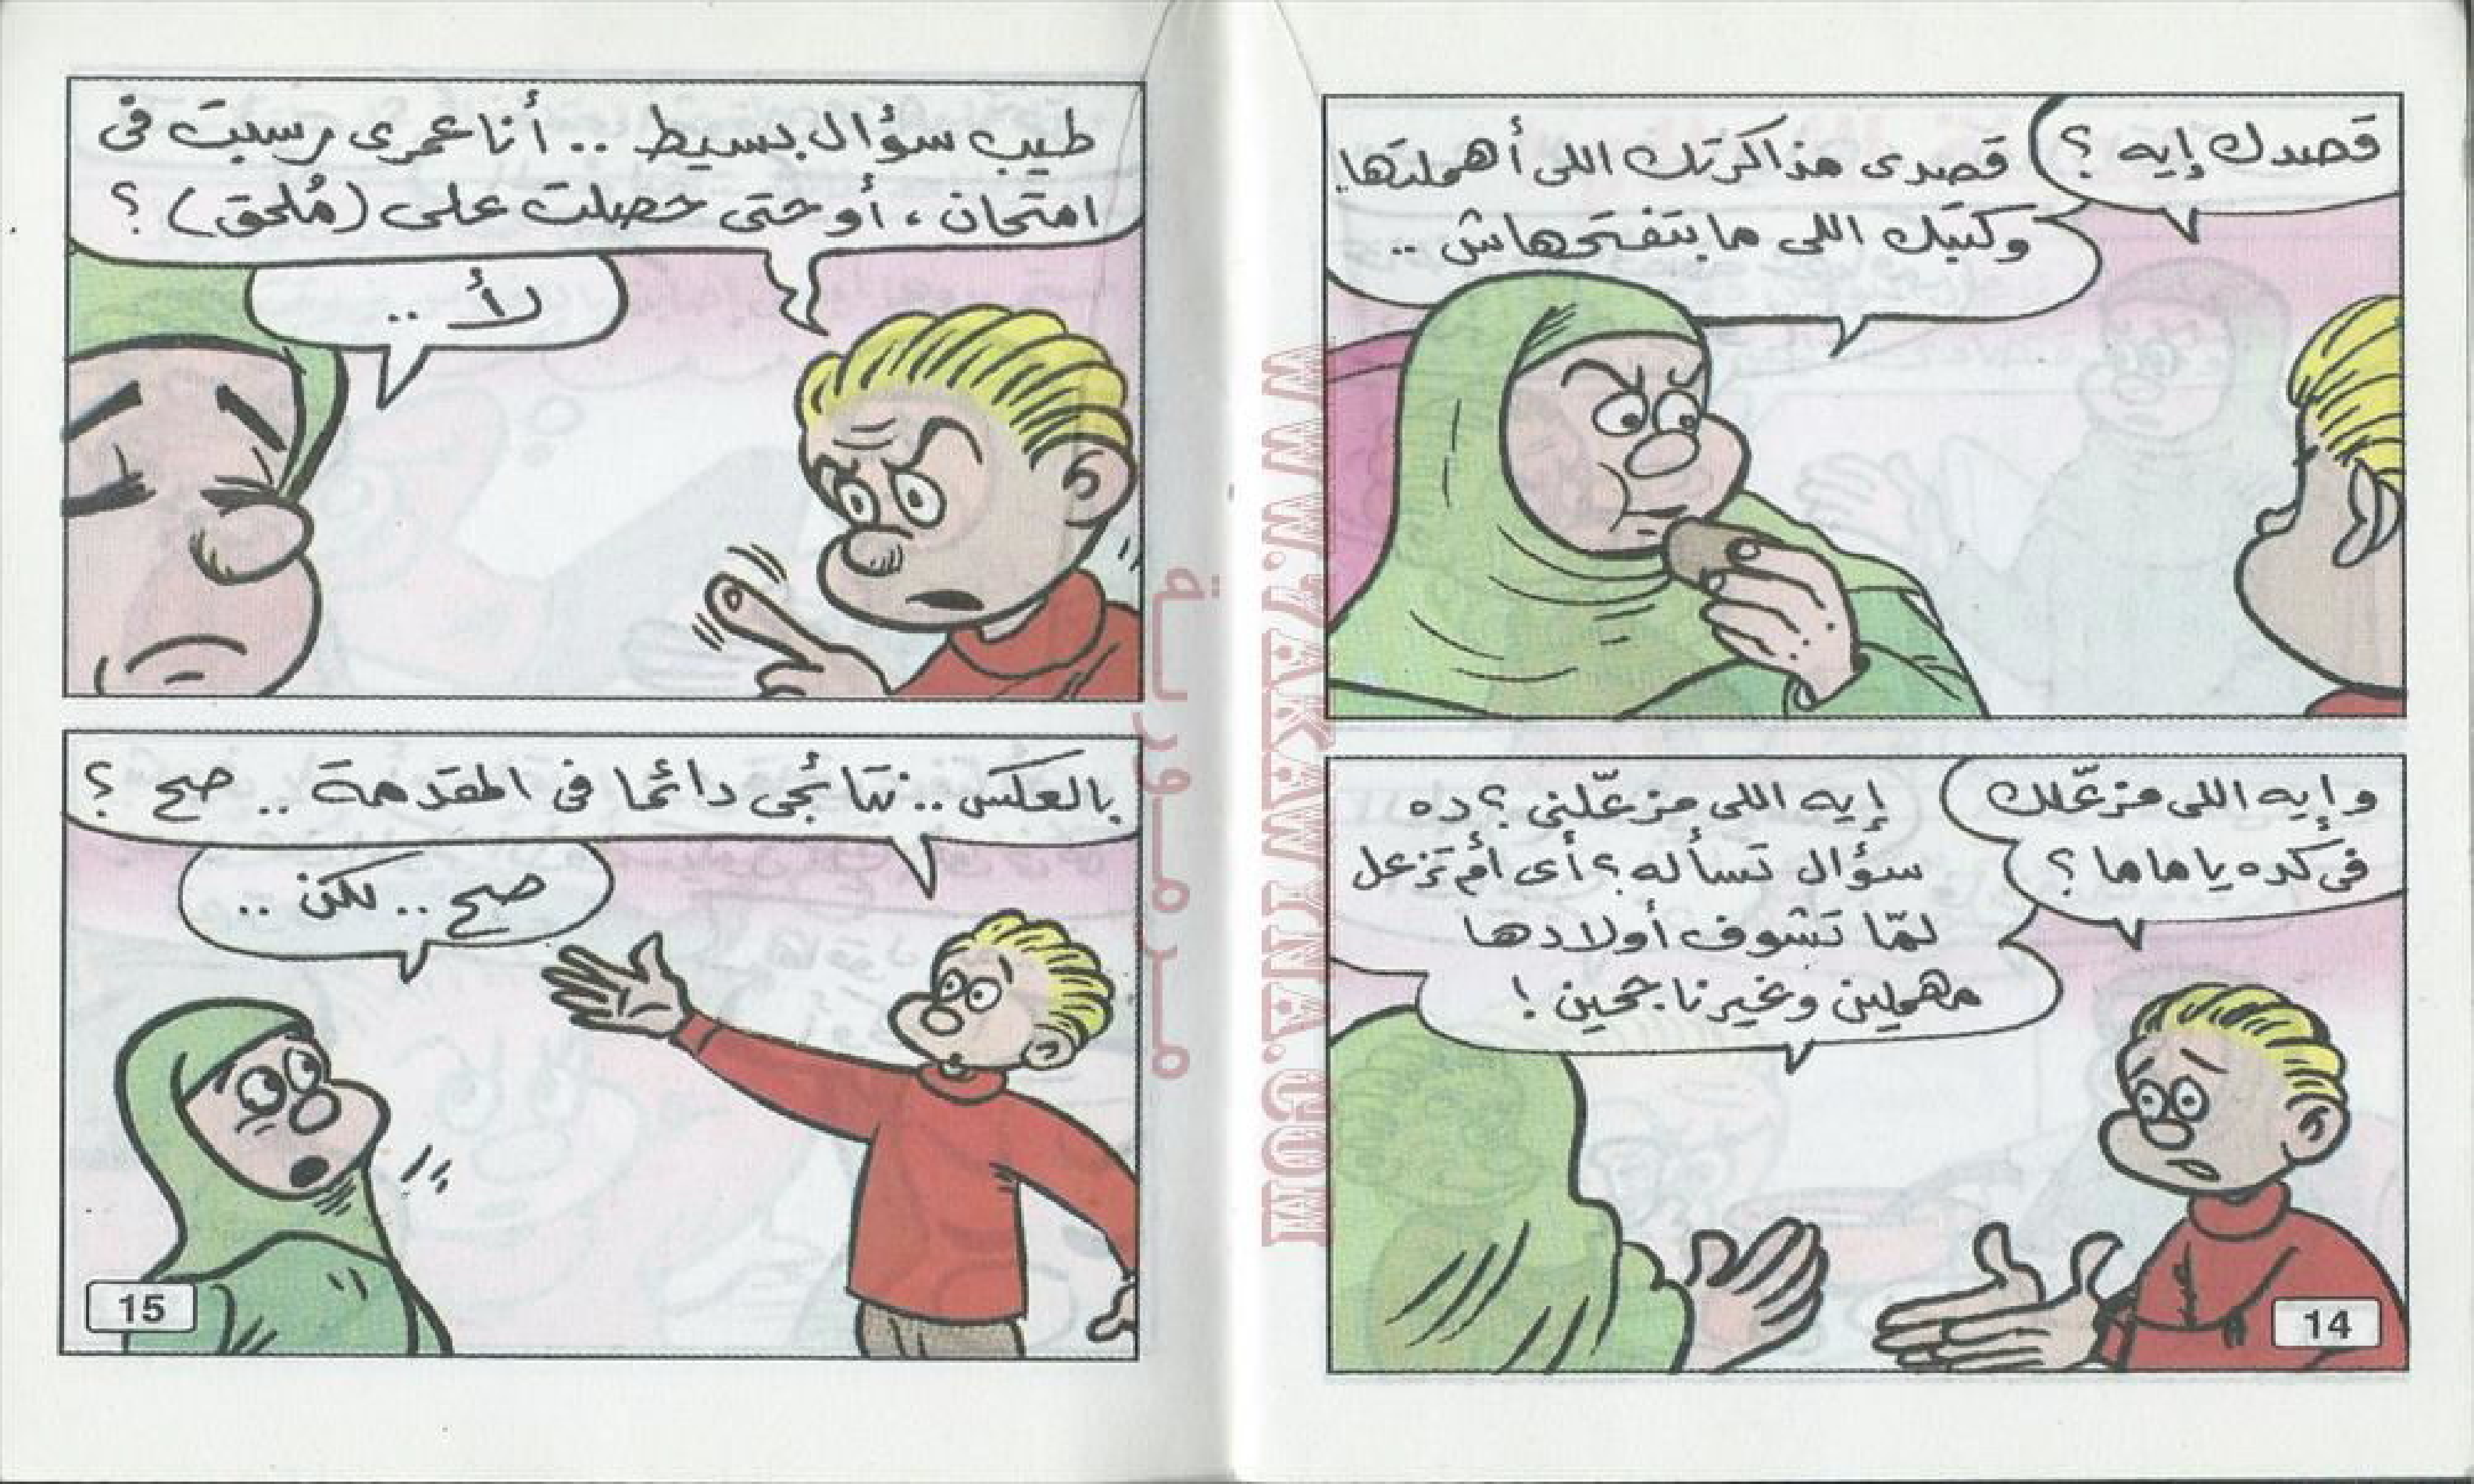 قصدك إيه ؟
قصدى مذاكرتك اللى أهملتها
وكتبك اللى ما بتفتحهاش ..
وإيه اللى مزعّلك
فى كده يا ماما ؟
إيه اللى مزعّلنى ؟ ده
سؤال تسأله ؟ أى أم تزعل
لمّا تشوف أولادها
مهملين وغير ناجحين !
14
طيب سؤال بسيط .. أنا عمرى رسبت فى
امتحان ، أو حتى حصلت على (مُلحق) ؟
لأ ..
بالعكس .. نتائجى دائما فى المقدمة .. صح ؟
صح .. لكن ..
15
WWW.ZAKAWINA.COM
مرمورية